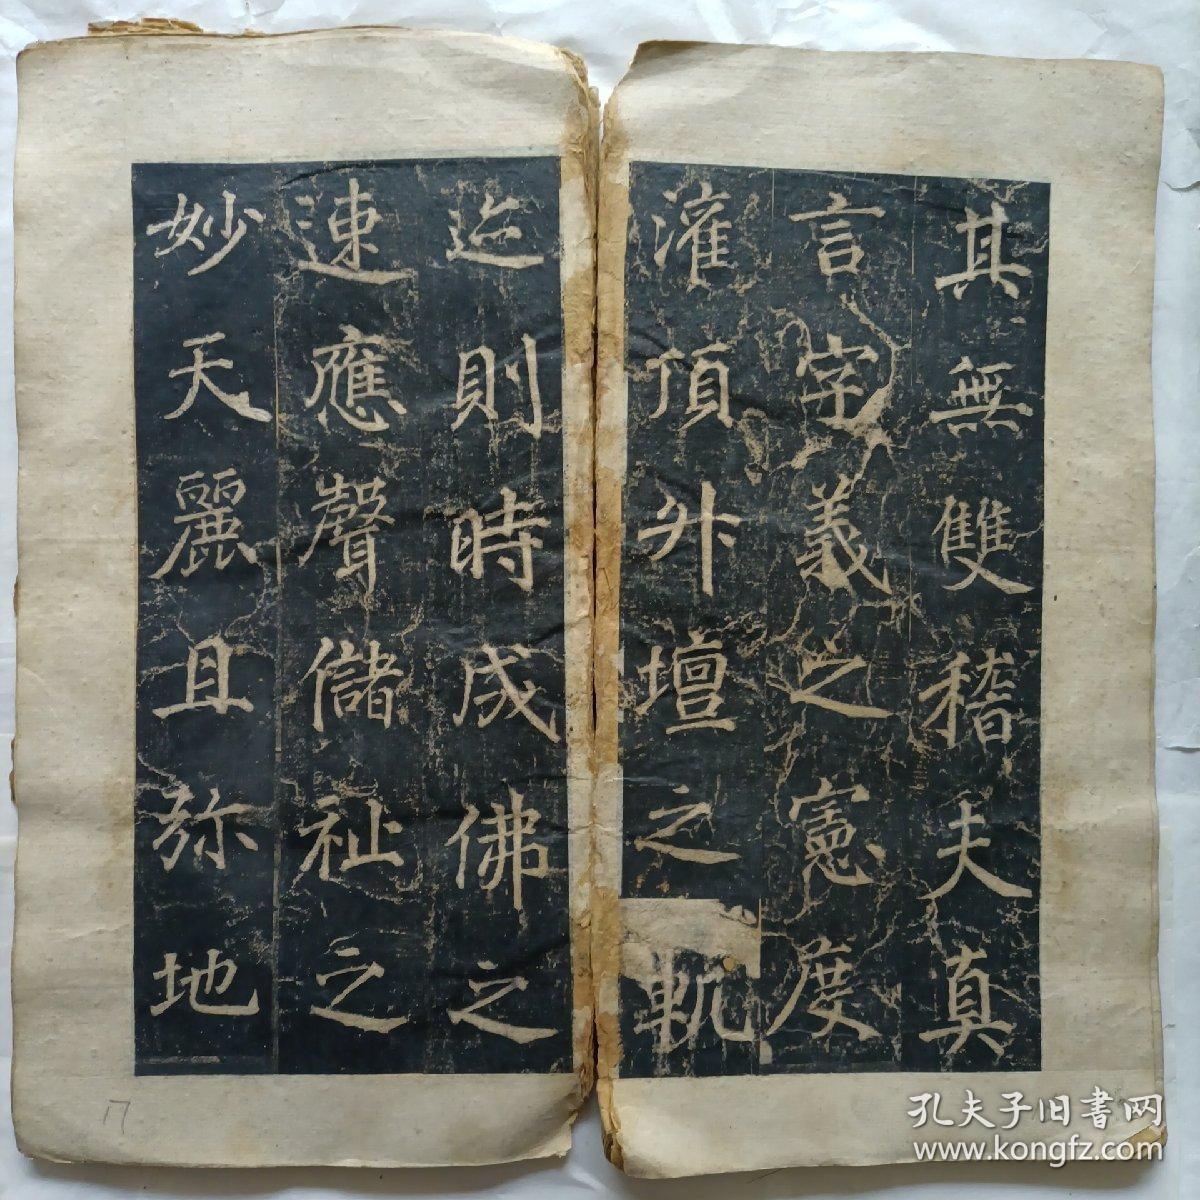 其無雙稽夫真
言字義之憲度
灌頂升壇之軌
迹則時成佛之
速應聲儲祉之
妙天麗且弥地
17
孔夫子旧書网
www.kongfz.com